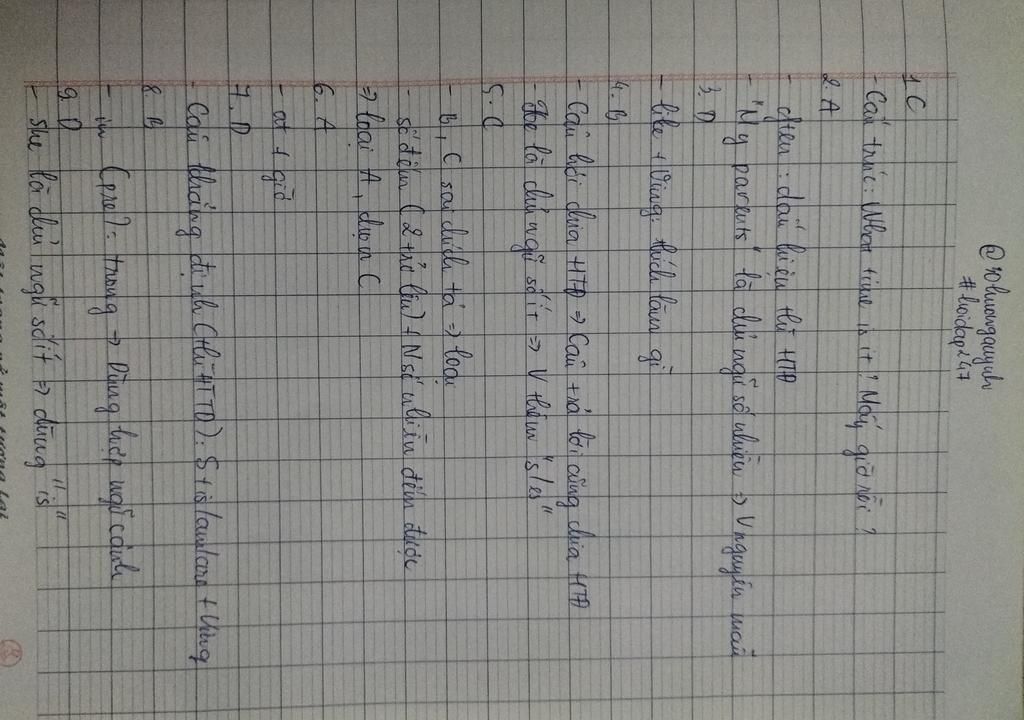 @10huongquynh
#hoidap247
1.C
- Cấu trúc: What time is it? Mấy giờ rồi?
2.A
- often: dấu hiệu thì HTĐ
- "My parents" là chủ ngữ số nhiều => V nguyên mẫu
3.D
- like + Ving: thích làm gì
4.B
- Câu hỏi chia HTĐ => Câu trả lời cũng chia HTĐ
- He là chủ ngữ số ít => V thêm "s/es"
5.C
- B, C sai chính tả => loại
- số đếm (2 trở lên) + N số nhiều đếm được
=> loại A, chọn C
6.A
- at + giờ
7.D
- Câu khẳng định (thì HTTD): S + is/am/are + Ving
8.B
- in (pre): trong → Dùng hợp ngữ cảnh
9.D
- She là chủ ngữ số ít => dùng "is"